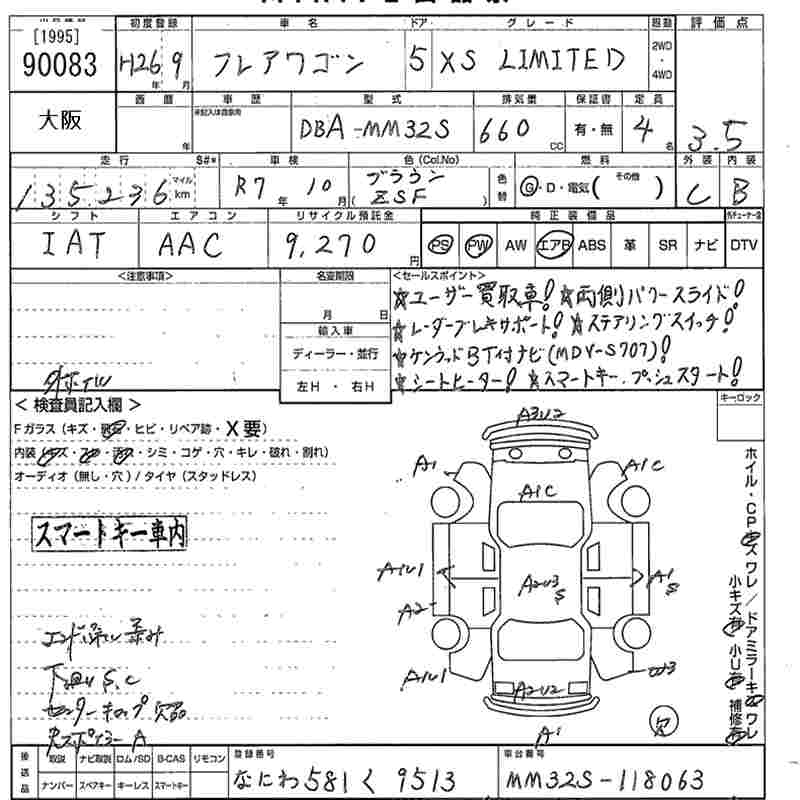 [1995]
90083
大阪
初度登録
H26年 9月
車名
フレアワゴン
ドア
5
グレード
XS LIMITED
駆動
2WD
・
4WD
評価点
3.5
西暦
年
車歴
未記入は自家用
型式
DBA-MM32S
排気量
660 CC
保証書
有・無
定員
4名
走行
135236 マイル km
S#*
車検
R7年 10月
色(Col.No)
ブラウン
( ZSF )
色替
燃料
G・D・電気( その他 )
外装
C
内装
B
シフト
IAT
エアコン
AAC
リサイクル預託金
9,270円
純正装備品
PS PW AW エアB ABS 革 SR ナビ DTV
<注意事項>
名変期限
月 日
輸入車
ディーラー・並行
左H・右H
<セールスポイント>
☆ユーザー買取車! ☆両側パワースライド!
☆レーダーブレーキサポート! ☆ステアリングスイッチ!
☆ケンウッドBT付ナビ(MDV-S707)!
☆シートヒーター! ☆スマートキー、プッシュスタート!
キーロック
<検査員記入欄>
Fガラス(キズ・飛石・ヒビ・リペア跡・X要)
内装(キズ・スレ・汚れ・シミ・コゲ・穴・キレ・破れ・割れ)
オーディオ(無し・穴)/タイヤ(スタッドレス)
スマートキー車内
下廻りS,C
センターキャップ欠品
A3U2
A1
A1C
A1C
A1U1
A2U3
S
A1
S
A2
A1U1
W3
A2U2
A1
欠
ホイル・CPキズワレ/ドアミラーキズワレ
小キズ有 小U有 補修有
後送品
取説 ナビ取説 ロム/SD B-CAS リモコン
ナンバー スペアキー キーレス スマートキー
登録番号
なにわ 581 く 9513
車台番号
MM32S-118063